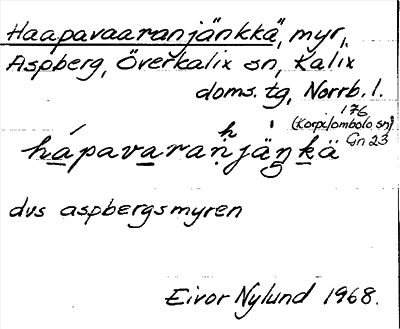 Haapavaaranjänkkä, myr,
Aspberg, Överkalix sn, Kalix
doms. tg, Norrb. l.
176
(Korpilombolo sn)
Gn 23
dvs aspbergsmyren
Eivor Nylund 1968.